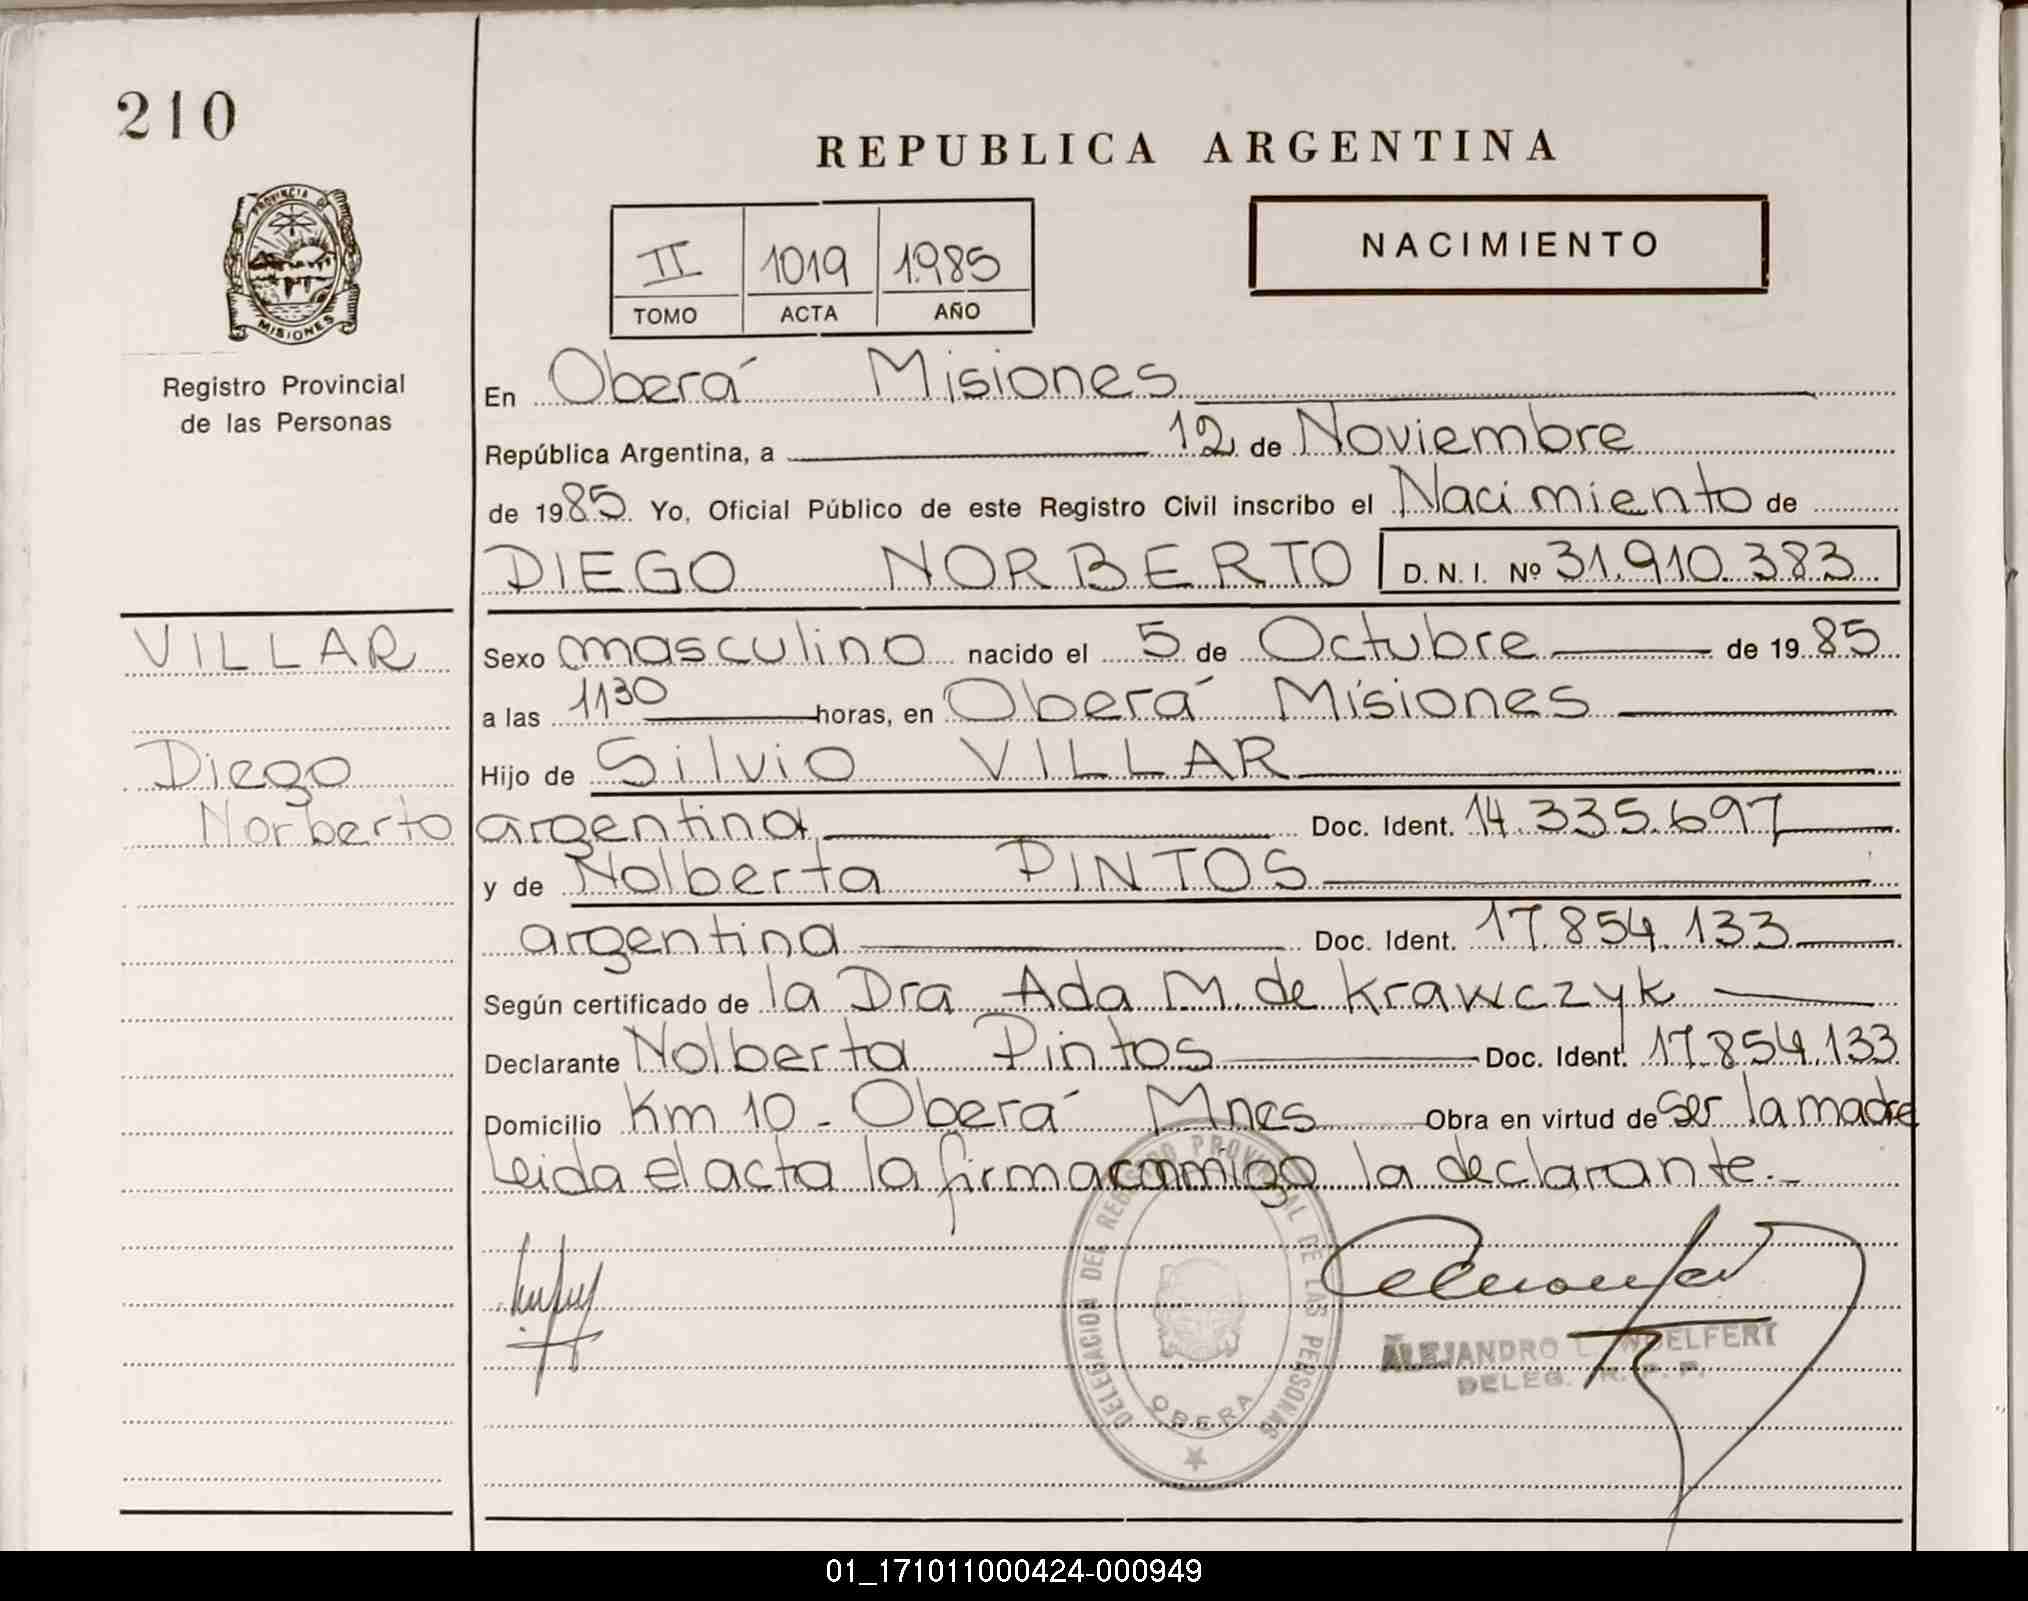 210
REPUBLICA ARGENTINA
PROVINCIA DE
MISIONES
Registro Provincial
de las Personas
II 1019 1985
TOMO ACTA AÑO
NACIMIENTO
En Oberá Misiones
República Argentina, a 12 de Noviembre
de 1985 Yo, Oficial Público de este Registro Civil inscribo el Nacimiento de
DIEGO NORBERTO D.N.I. Nº 31.910.383
VILLAR
Diego
Norberto
Sexo masculino nacido el 5 de Octubre de 1985
a las 1130 horas, en Oberá Misiones
Hijo de Silvio VILLAR
argentina Doc. Ident. 14.335.697
y de Nolberta PINTOS
argentina Doc. Ident. 17.854.133
Según certificado de la Dra Ada M. de Krawczyk
Declarante Nolberta Pintos Doc. Ident. 17.854.133
Domicilio Km 10 - Oberá Mnes Obra en virtud de ser la madre
Leida el acta la firma conmigo la declarante.-
DELEGACION DEL REGISTRO PROVINCIAL DE LAS PERSONAS
OBERA
ALEJANDRO
DELEG. R. P. P.
01_171011000424-000949